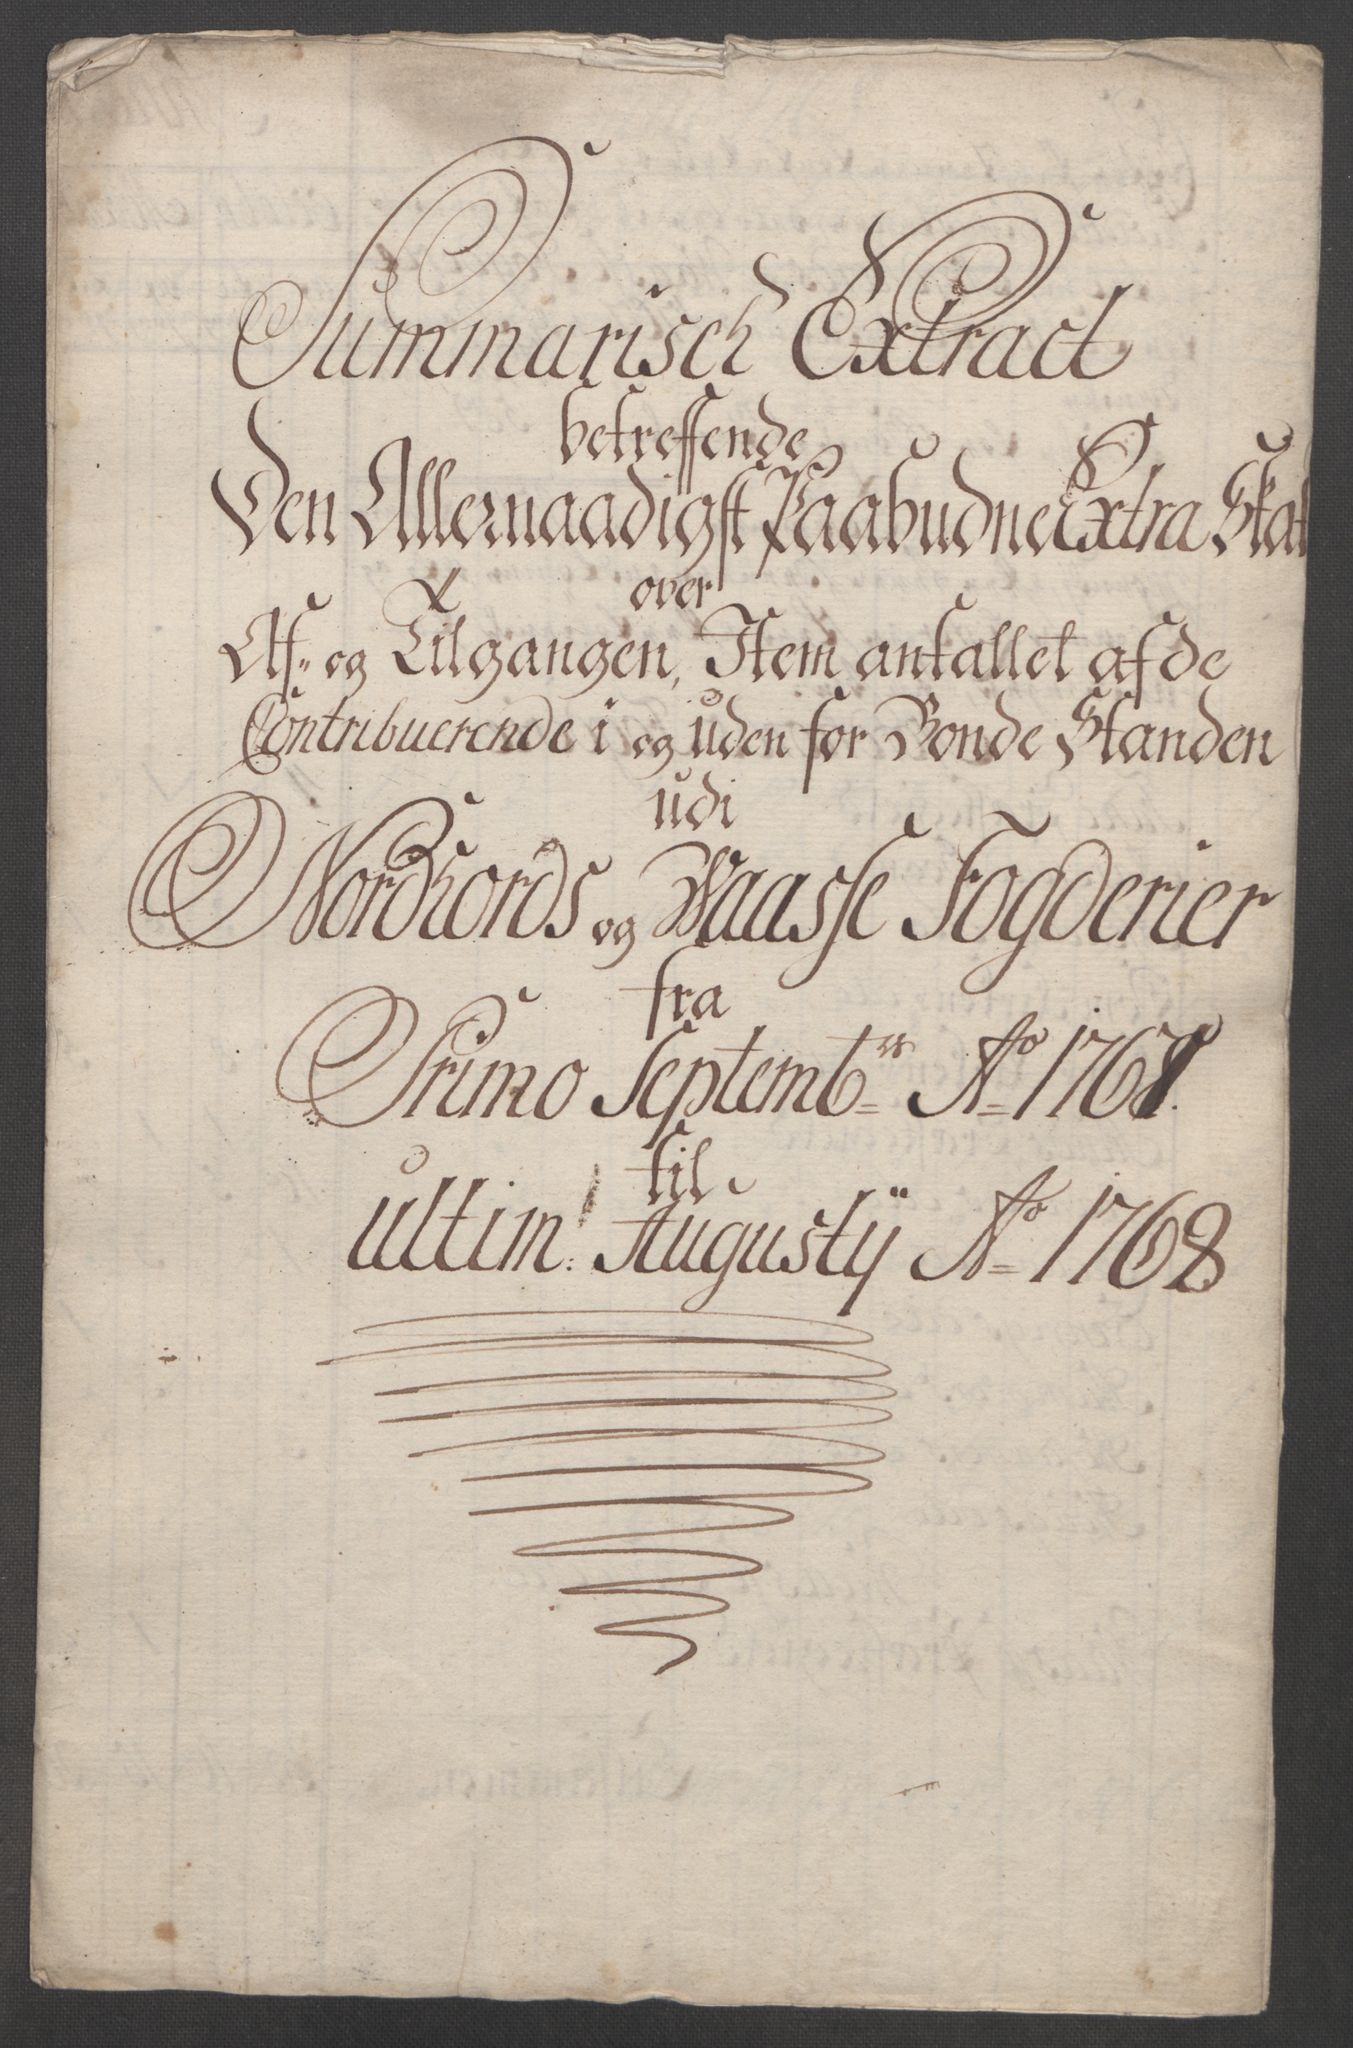 Summarisch Extract
betreffende
Den Allernaadigst Paabudne Extra Skat
over
Af- og Tilgangen, Item antallet af de
Contribuerende i og uden for Bonde Standen
udi
Nordhords og Waasse Fogderier
fra
Primo Septembr Ao
til
ultim: Augustÿ Ao 1768